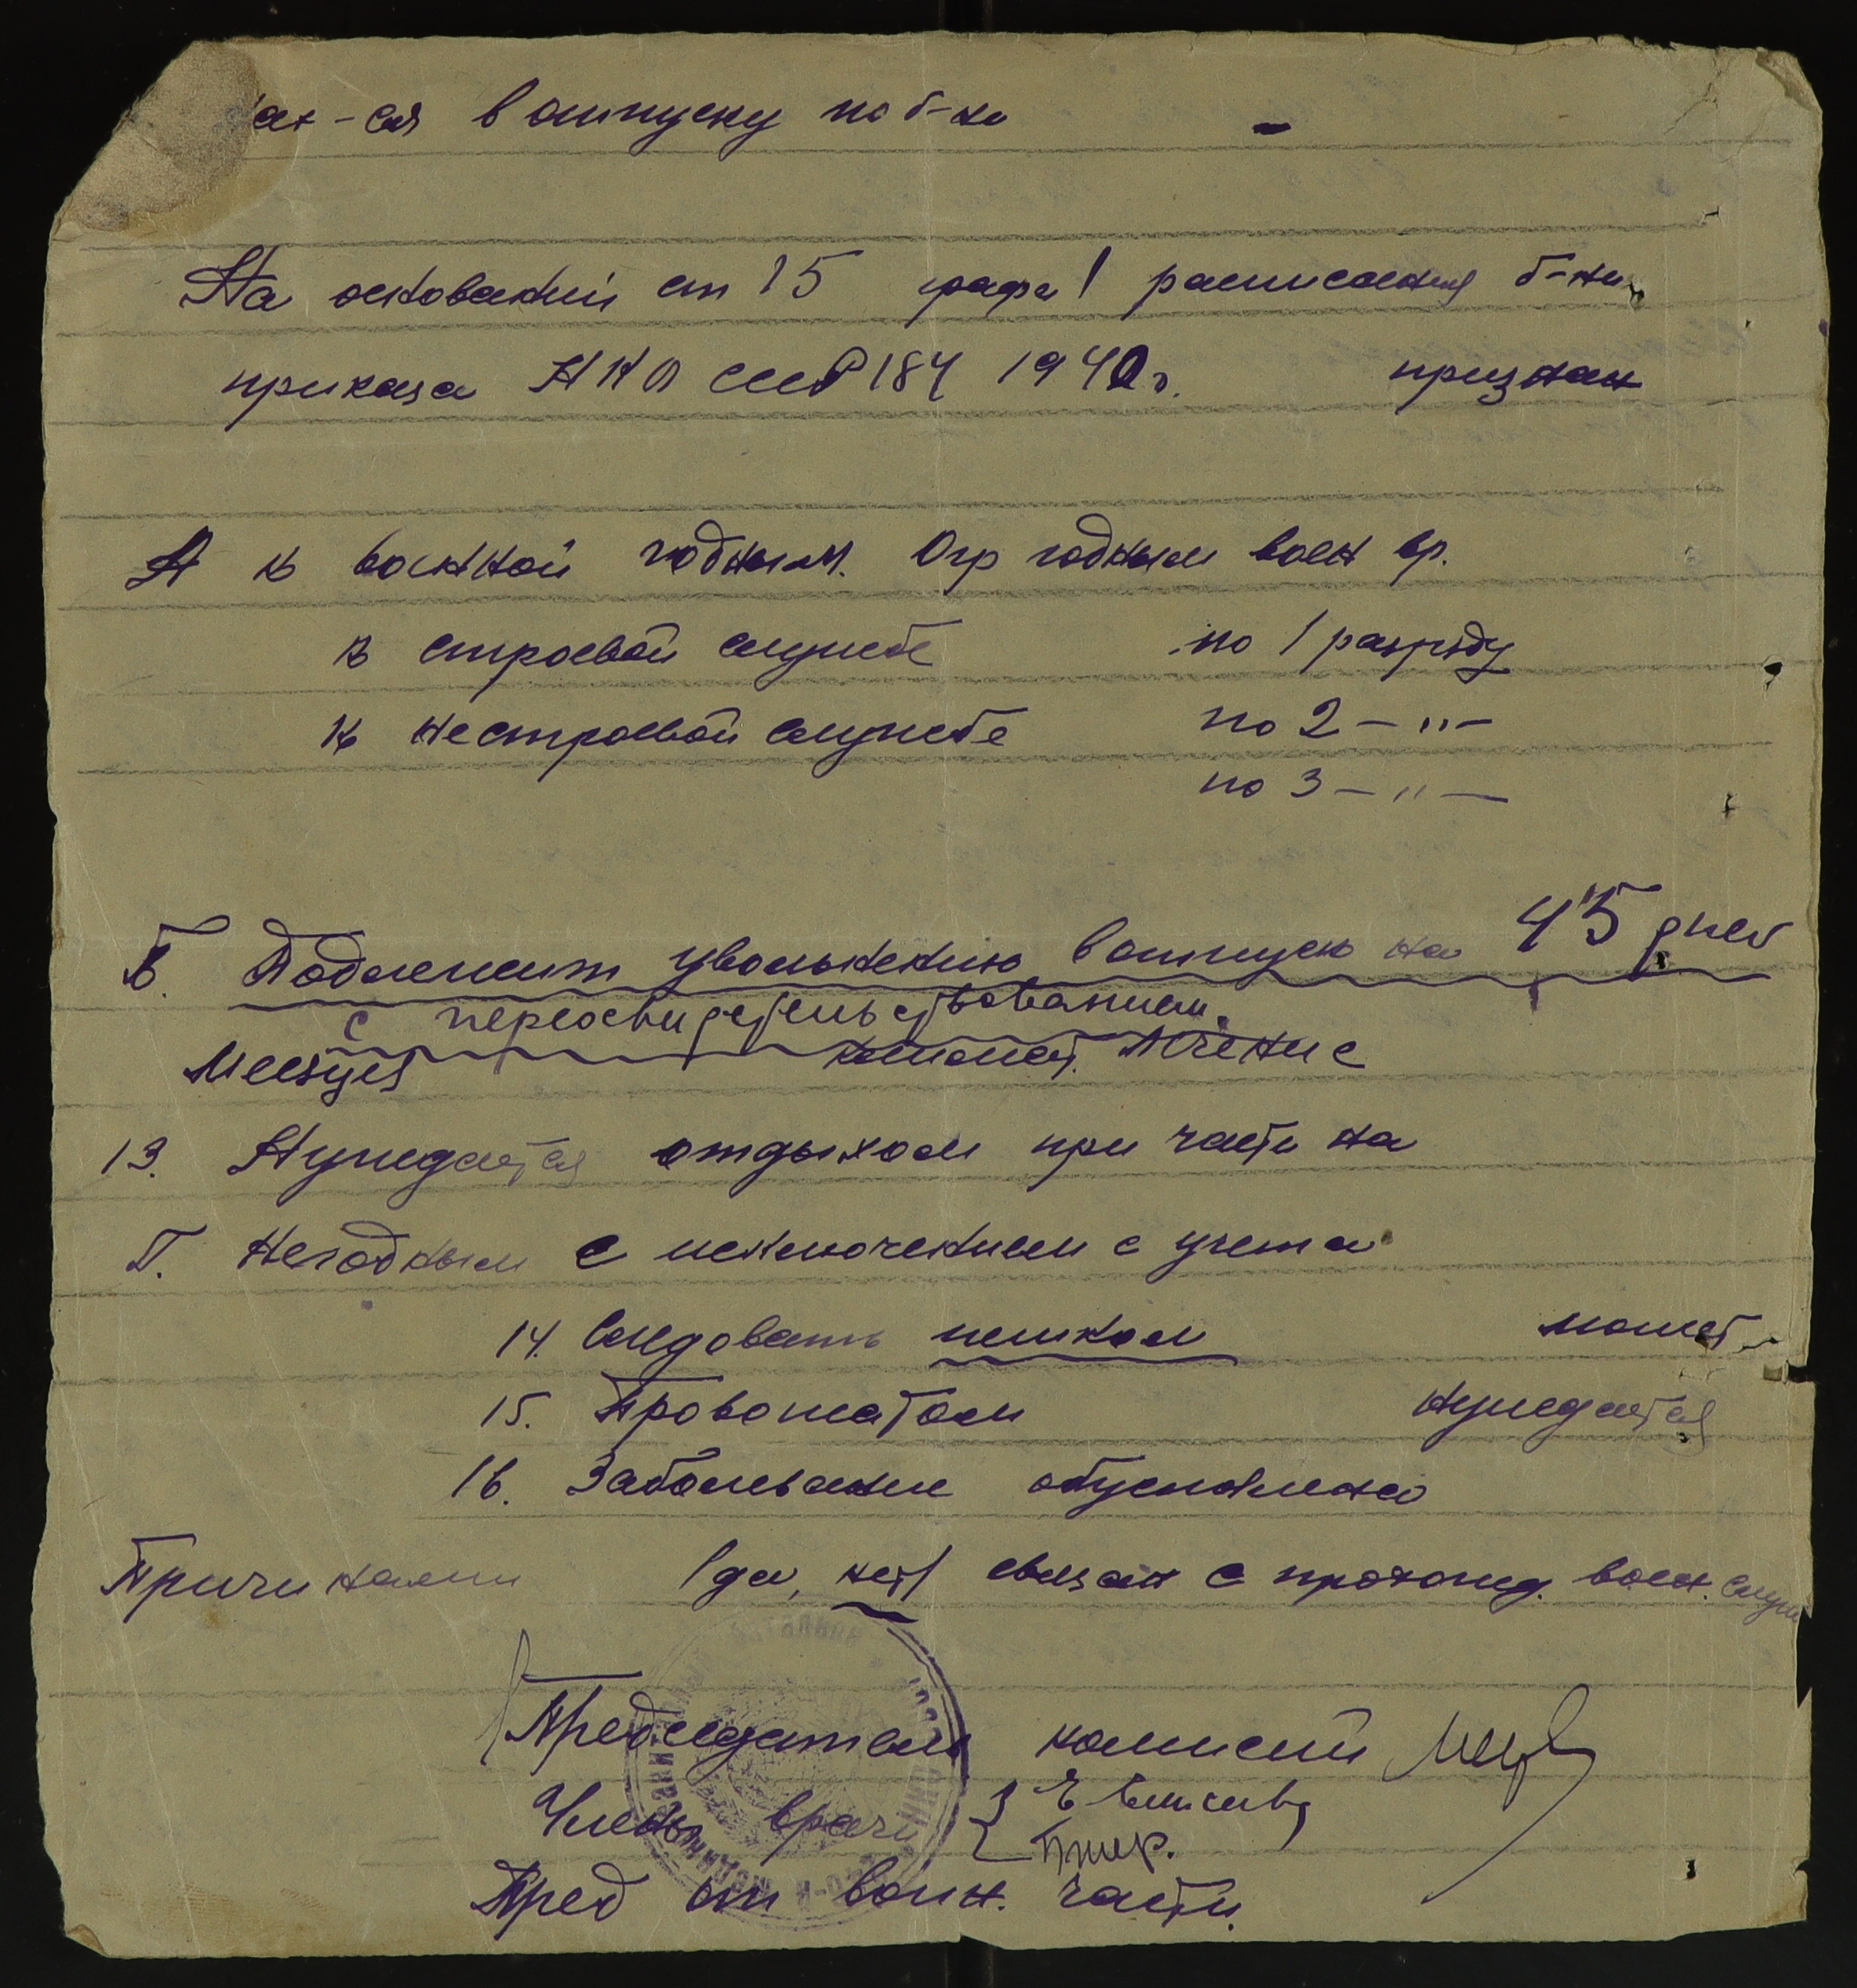 ах-ся в отпуску по б-ни -
На основании ст 15 графа 1 расписания б-ни
приказа НКО СССР 184 1940 г. признан
А к военной годным. Огр годным воен вр.
к строевой службе по 1 разряду
к нестроевой службе по 2 — " —
по 3 — " —
В. Подлежит увольнению в отпуск на 45 дней
с переосвидетельствованием.
Месяцев лечение
13. Нуждается отдыхом при части на
Г. Негодным с исключением с учета
14. Следовать пешком может
15. Провожатом нуждается
16. Заболевание обусловлено
Причинами (да, нет) связан с прохожд. воен. служ
Председатель комиссии
Члены врачи
Пред от воин. части.